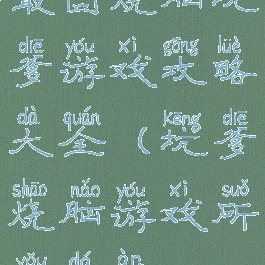 diē yóu xì gōng lüè
爹游戏攻略
dà quán kēng diē
大全(坑爹
shāo nǎo yóu xì suǒ
烧脑游戏所
yǒu dá àn